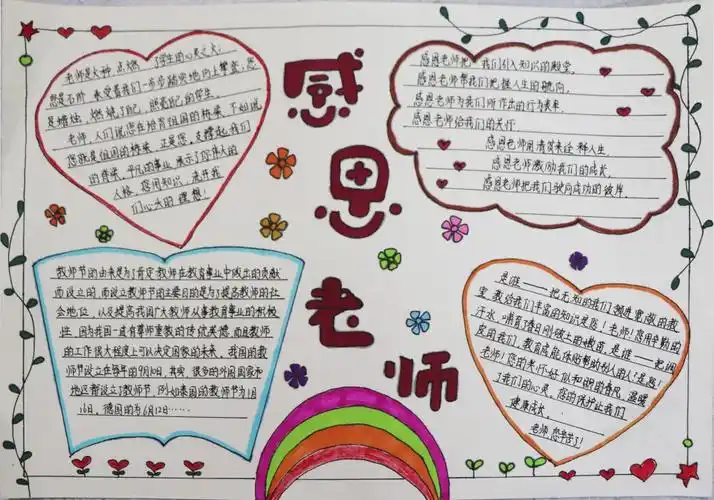 感恩老师
老师是火种，点燃了学生的心灵之火，
您是石阶，承受着我们一步步踏实地向上攀登，您
是蜡烛，燃烧了自己，照亮的学生。
老师，人们说您在培育祖国的桥梁，不如说
您就是祖国的桥梁，正是您，支撑起我们
的脊梁。平凡的事业，展示了你伟大的
人格，您用知识，走开我
们心头的理想！
感恩老师把我们引入知识的殿堂。
感恩老师帮我们把握人生的航向。
感恩老师为我们所作出的行为表率。
感恩老师给我们的关怀
感恩老师用清贫来诠释人生
感恩老师激励我们的成长。
感恩老师把我们驶向成功的彼岸。
教师节的由来是为了肯定教师在教育事业中做出的贡献
而设立的，而设立教师节的主要目的是为了提高教师的社
会地位，以及提高我国广大教师从事教育事业的积极
性，因为我国一直有尊师重教的传统美德，而且教师
的工作很大程度上可以决定国家的未来，我国的教
师节设立在每年的9月10日，其实，很多的外国国家和
地区都设立了教师节，例如泰国的教师节为1月
16日，德国的为6月12日……
是谁——把无知的我们领进宽敞的教
室，教给我们丰富的知识是您！老师！您用辛勤的
汗水，哺育了春日刚破土的嫩苗，是谁——把调
皮的我们，教育成能体贴帮助别人的人？是您！
老师！您的关怀好似和煦的春风，温暖
了我们的心灵，您的保护让我们
健康成长。
老师，您辛苦了！